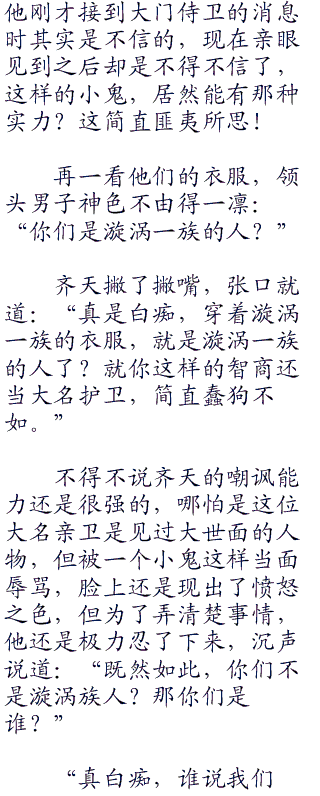 他刚才接到大门侍卫的消息
时其实是不信的，现在亲眼
见到之后却是不得不信了，
这样的小鬼，居然能有那种
实力？这简直匪夷所思！
再一看他们的衣服，领
头男子神色不由得一凛：
“你们是漩涡一族的人？”
齐天撇了撇嘴，张口就
道：“真是白痴，穿着漩涡
一族的衣服，就是漩涡一族
的人了？就你这样的智商还
当大名护卫，简直蠢狗不
如。”
不得不说齐天的嘲讽能
力还是很强的，哪怕是这位
大名亲卫是见过大世面的人
物，但被一个小鬼这样当面
辱骂，脸上还是现出了愤怒
之色，但为了弄清楚事情，
他还是极力忍了下来，沉声
说道：“既然如此，你们不
是漩涡族人？那你们是
谁？”
“真白痴，谁说我们